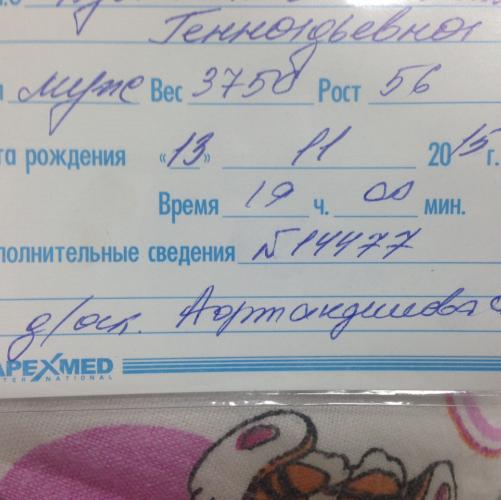 Геннадьевна
муж Вес 3750 Рост 56
та рождения «13» 11 2015 г.
Время 19 ч. 00 мин.
полнительные сведения №14477
д/ак.
APEXMED
INTERNATIONAL